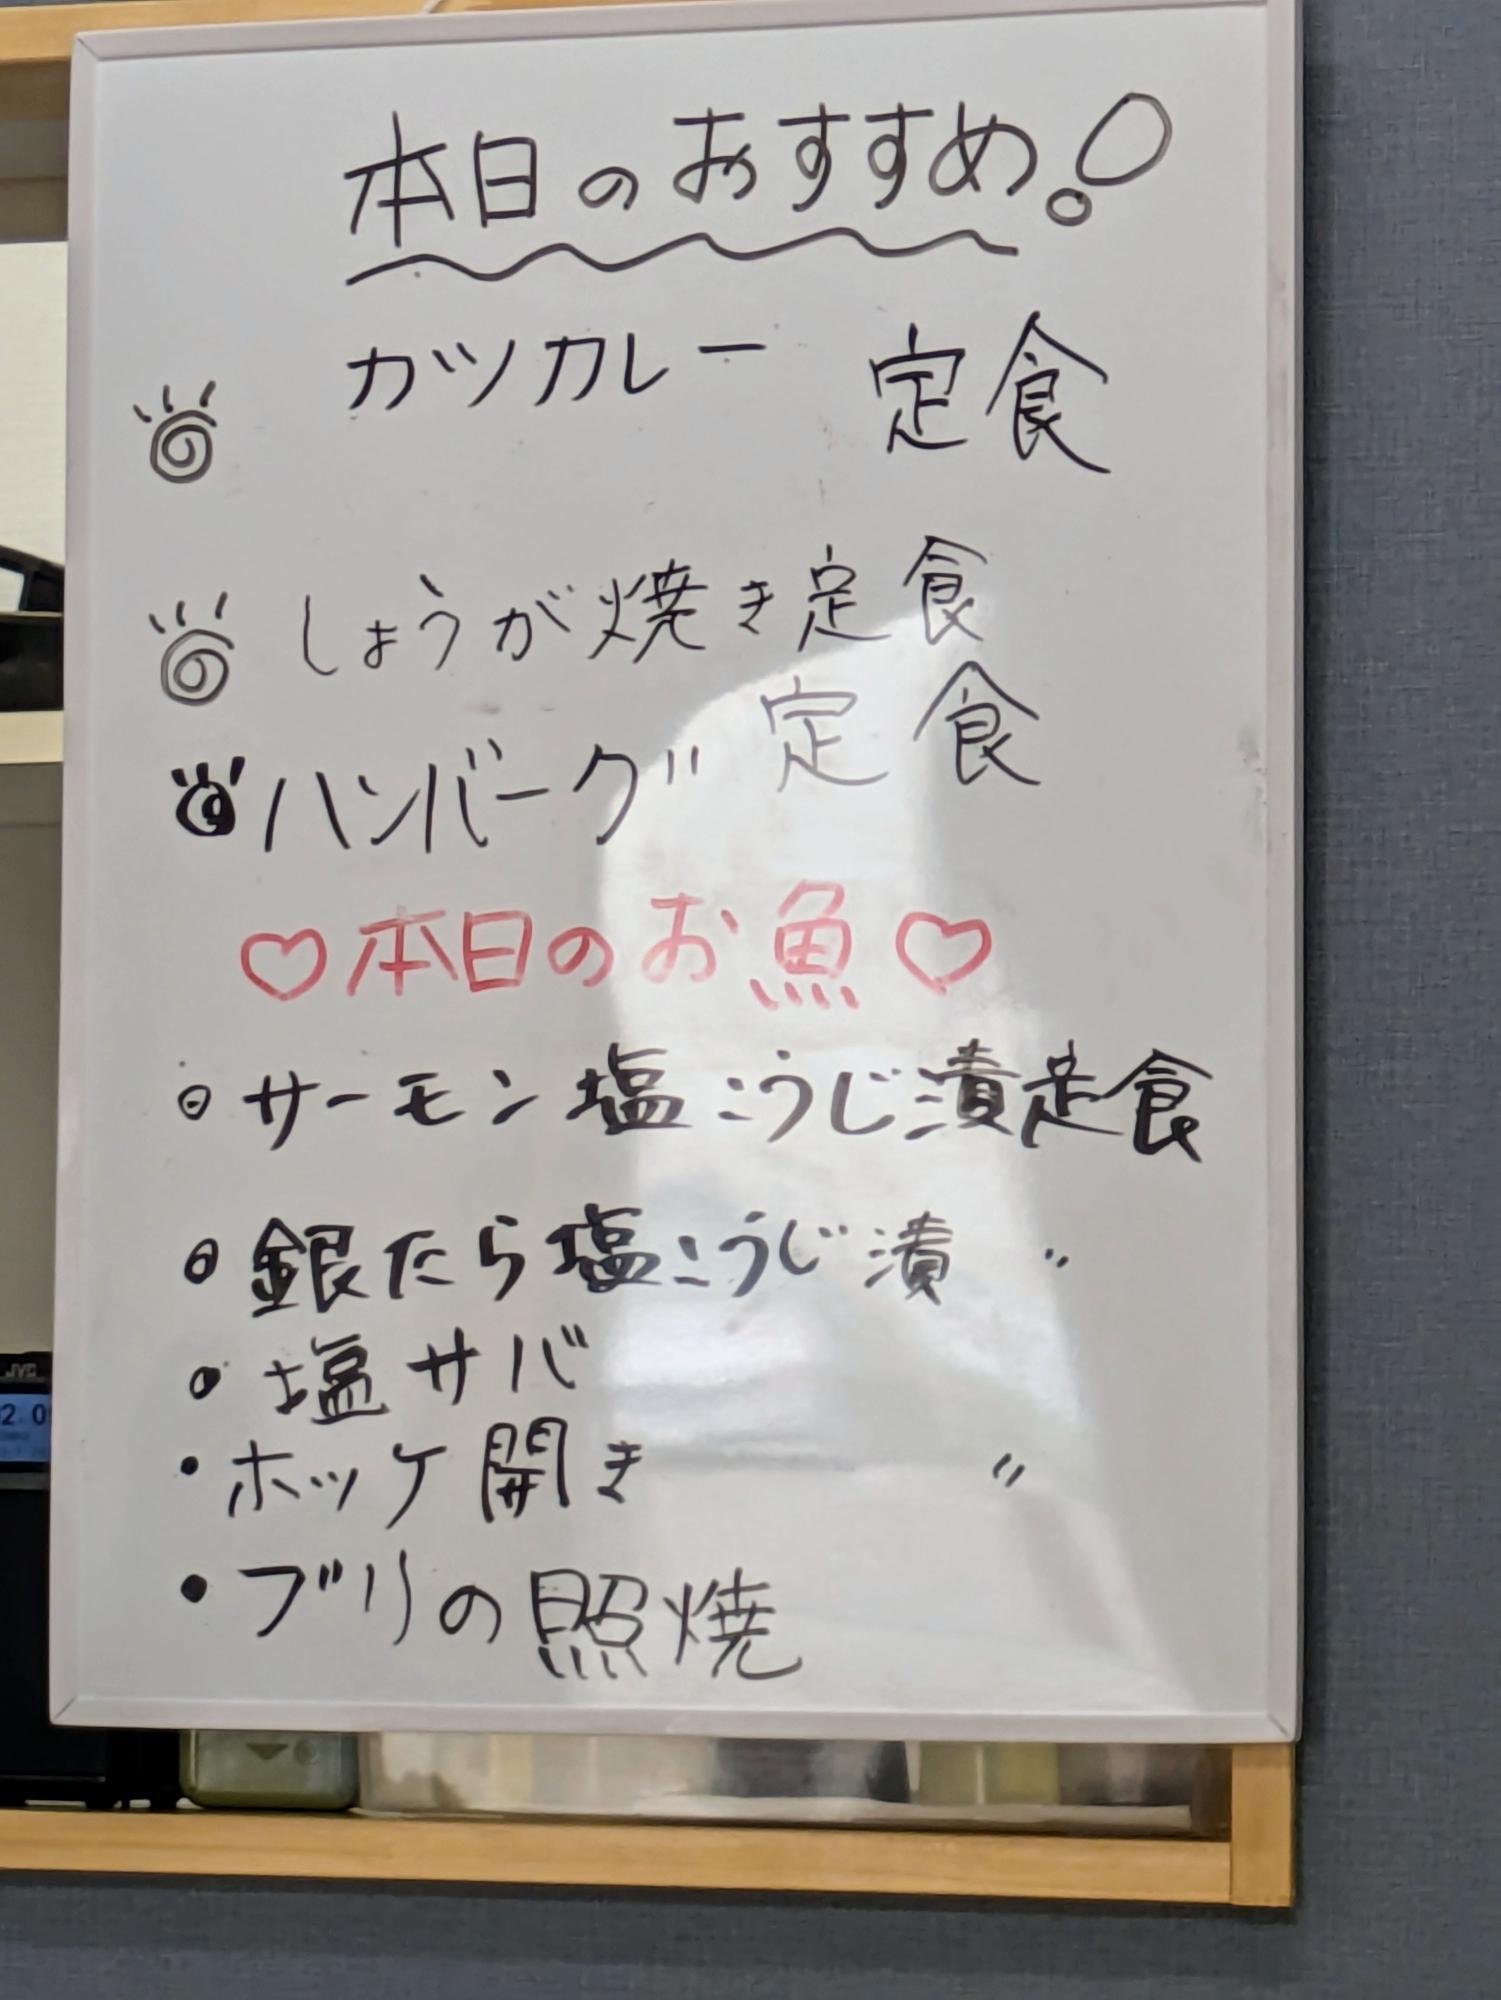 本日のおすすめ!
カツカレー 定食
しょうが焼き定食
ハンバーグ 定食
♡本日のお魚♡
サーモン塩こうじ漬定食
銀たら塩こうじ漬 〃
塩サバ
・ホッケ開き 〃
・ブリの照焼
JVC